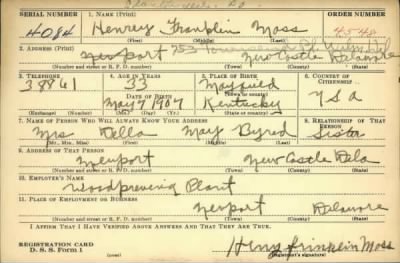 SERIAL NUMBER 1. NAME (Print) ORDER NUMBER
4084 Henrey Franklin Moss 4548
(First) (Middle) (Last)
2. ADDRESS (Print)
Newport 253 New Castle Delaware
(Number and street or R. F. D. number) (Town) (County) (State)
3. TELEPHONE 4. AGE IN YEARS 5. PLACE OF BIRTH 6. COUNTRY OF CITIZENSHIP
38861 33 Mayfield
DATE OF BIRTH (Town or county)
May 7 1907 Kentucky U S A
(Exchange) (Number) (Mo.) (Day) (Yr.) (State or country)
7. NAME OF PERSON WHO WILL ALWAYS KNOW YOUR ADDRESS 8. RELATIONSHIP OF THAT PERSON
Mrs Della May Byred Sister
(Mr., Mrs., Miss) (First) (Middle) (Last)
9. ADDRESS OF THAT PERSON
Newport New Castle Dela
(Number and street or R. F. D. number) (Town) (County) (State)
10. EMPLOYER'S NAME
Woodpreving Plant
11. PLACE OF EMPLOYMENT OR BUSINESS
Newport Delaware
(Number and street or R. F. D. number) (Town) (County) (State)
I AFFIRM THAT I HAVE VERIFIED ABOVE ANSWERS AND THAT THEY ARE TRUE.
REGISTRATION CARD
D. S. S. Form 1
Henry Frinklin Moss
(Registrant's signature)